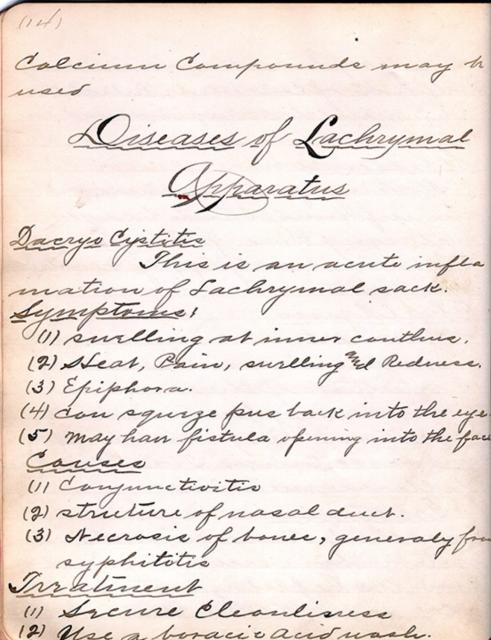 (14)
Calcium Compounds may b
used
Diseases of Lachrymal
Apparatus
Dacryo Cystitis
This is an acute infla
mation of Lachrymal sack.
Symptoms:
(1) swelling at inner canthus.
(2) Heat, Pain, swelling and Redness.
(3) Epiphora.
(4) can squeze pus back into the eye
(5) may have fistula opening into the face
Causes
(1) Conjunctivitis
(2) structure of nasal duct.
(3) Necrosis of bones, generaly from
syphititis
Treatment
(1) Secure Cleanliness
(2) Use a boracic Acid wash